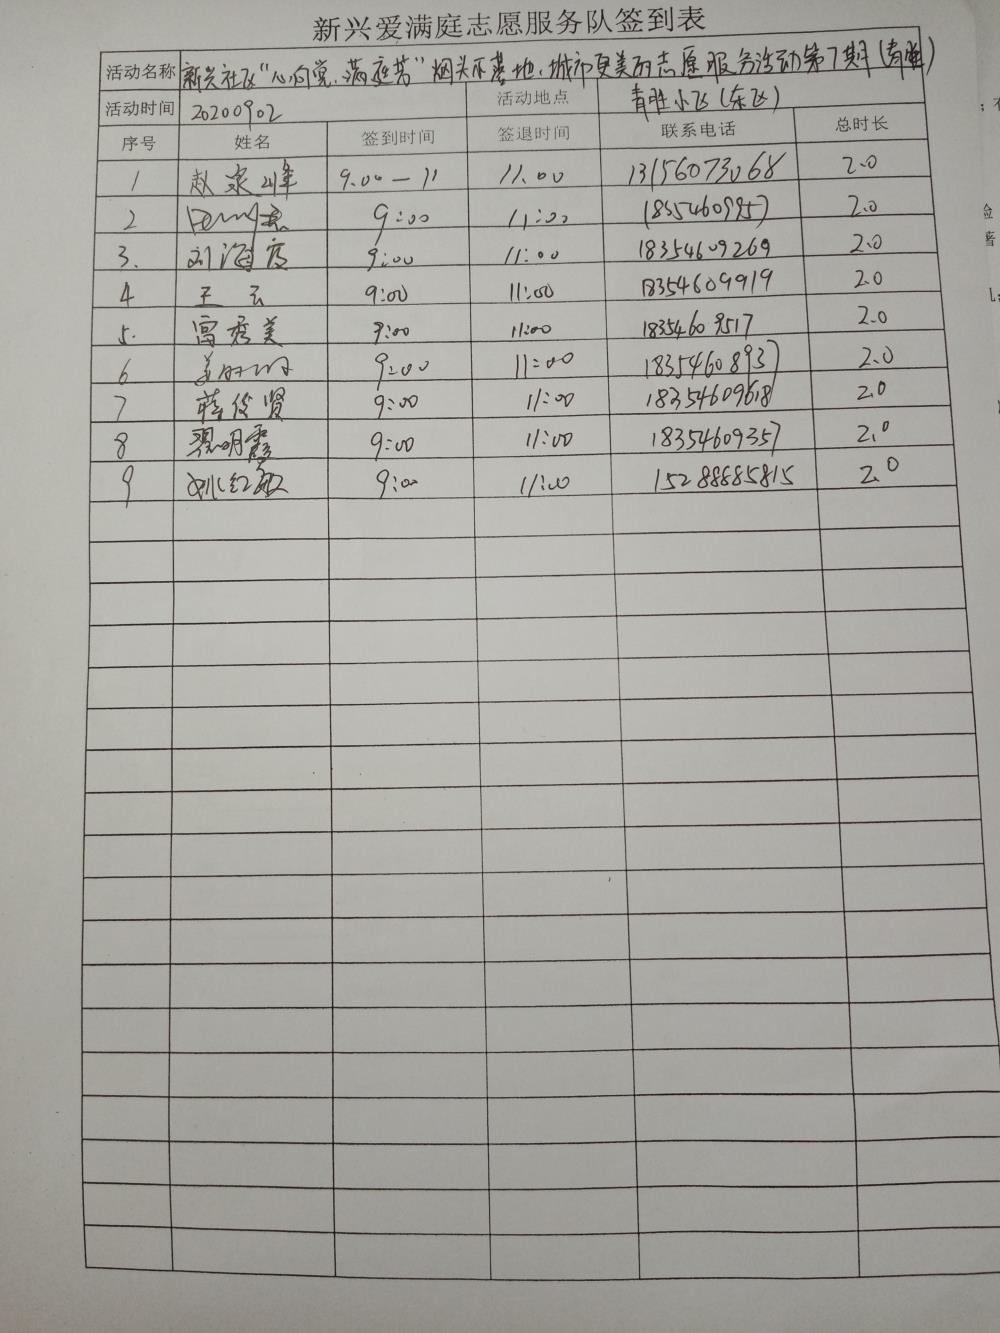 新兴爱满庭志愿服务队签到表
活动名称 新兴社区"心向党、满庭芳"烟头不落地,城市更美的志愿服务活动第7期(青胜)
活动时间 20200902 活动地点 青胜小区(东区)
序号 姓名 签到时间 签退时间 联系电话 总时长
1 赵家峰 9:00-11 11:00 13156073068 2.0
2 9:00 11:00 18354609957 2.0
3. 刘海 9:00 11:00 18354609269 2.0
4 王云 9:00 11:00 18354609919 2.0
5. 富秀美 9:00 11:00 18354609517 2.0
6 9:00 11:00 18354608937 2.0
7 蒋俊贤 9:00 11:00 18354609618 2.0
8 明霞 9:00 11:00 18354609357 2.0
9 刘红敏 9:00 11:00 15288885815 2.0